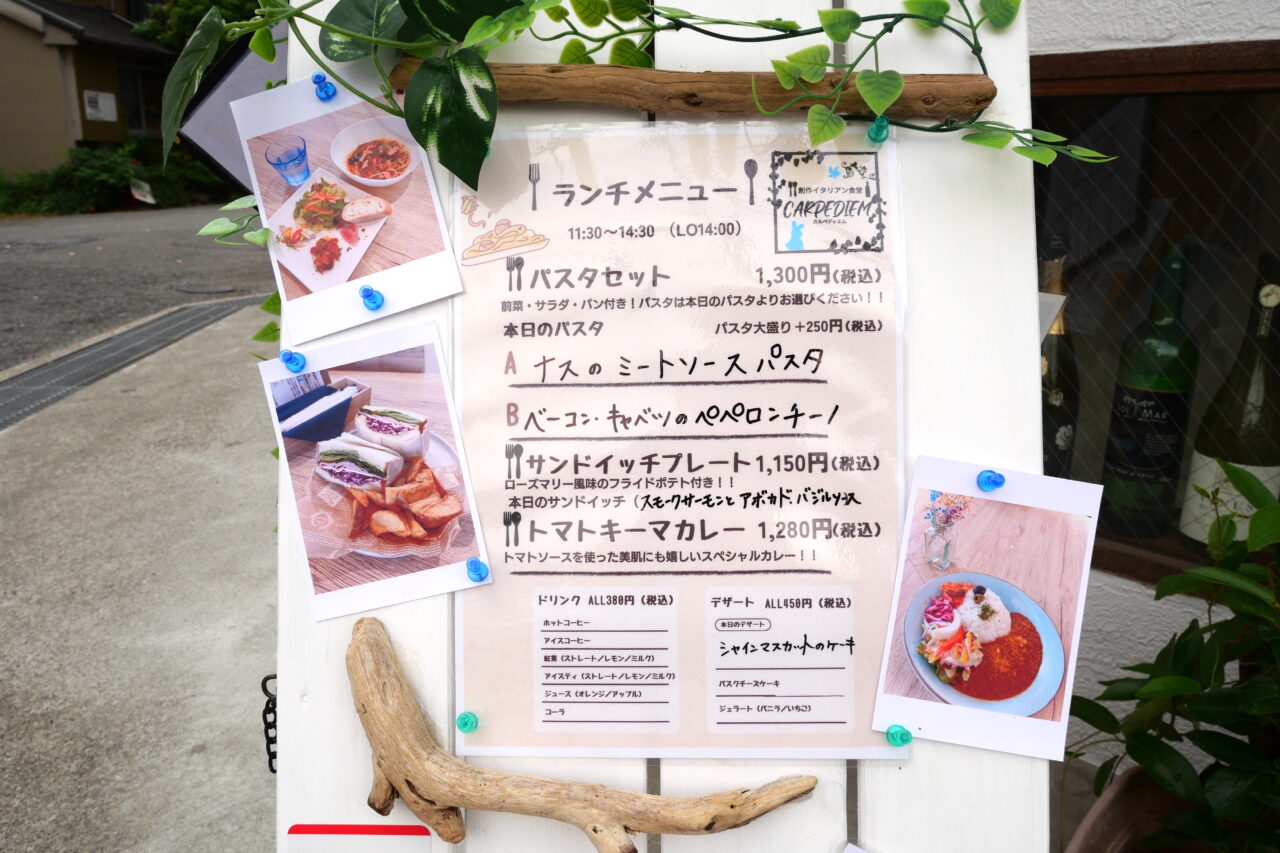 ランチメニュー
11:30～14:30 （LO14:00）
創作イタリアン食堂
CARPEDIEM
カルペディエム
パスタセット 1,300円(税込)
前菜・サラダ・パン付き！パスタは本日のパスタよりお選びください！！
本日のパスタ パスタ大盛り＋250円(税込)
A ナスの ミートソースパスタ
B ベーコン・キャベツのペペロンチーノ
サンドイッチプレート 1,150円(税込)
ローズマリー風味のフライドポテト付き！！
本日のサンドイッチ（スモークサーモンと アボカド、バジルソース
トマトキーマカレー 1,280円(税込)
トマトソースを使った美肌にも嬉しいスペシャルカレー！！
ドリンク ALL380円（税込）
ホットコーヒー
アイスコーヒー
紅茶（ストレート／レモン／ミルク）
アイスティ（ストレート／レモン／ミルク）
ジュース（オレンジ／アップル）
コーラ
デザート ALL450円（税込）
本日のデザート
シャインマスカットのケーキ
バスクチーズケーキ
ジェラート（バニラ／いちご）